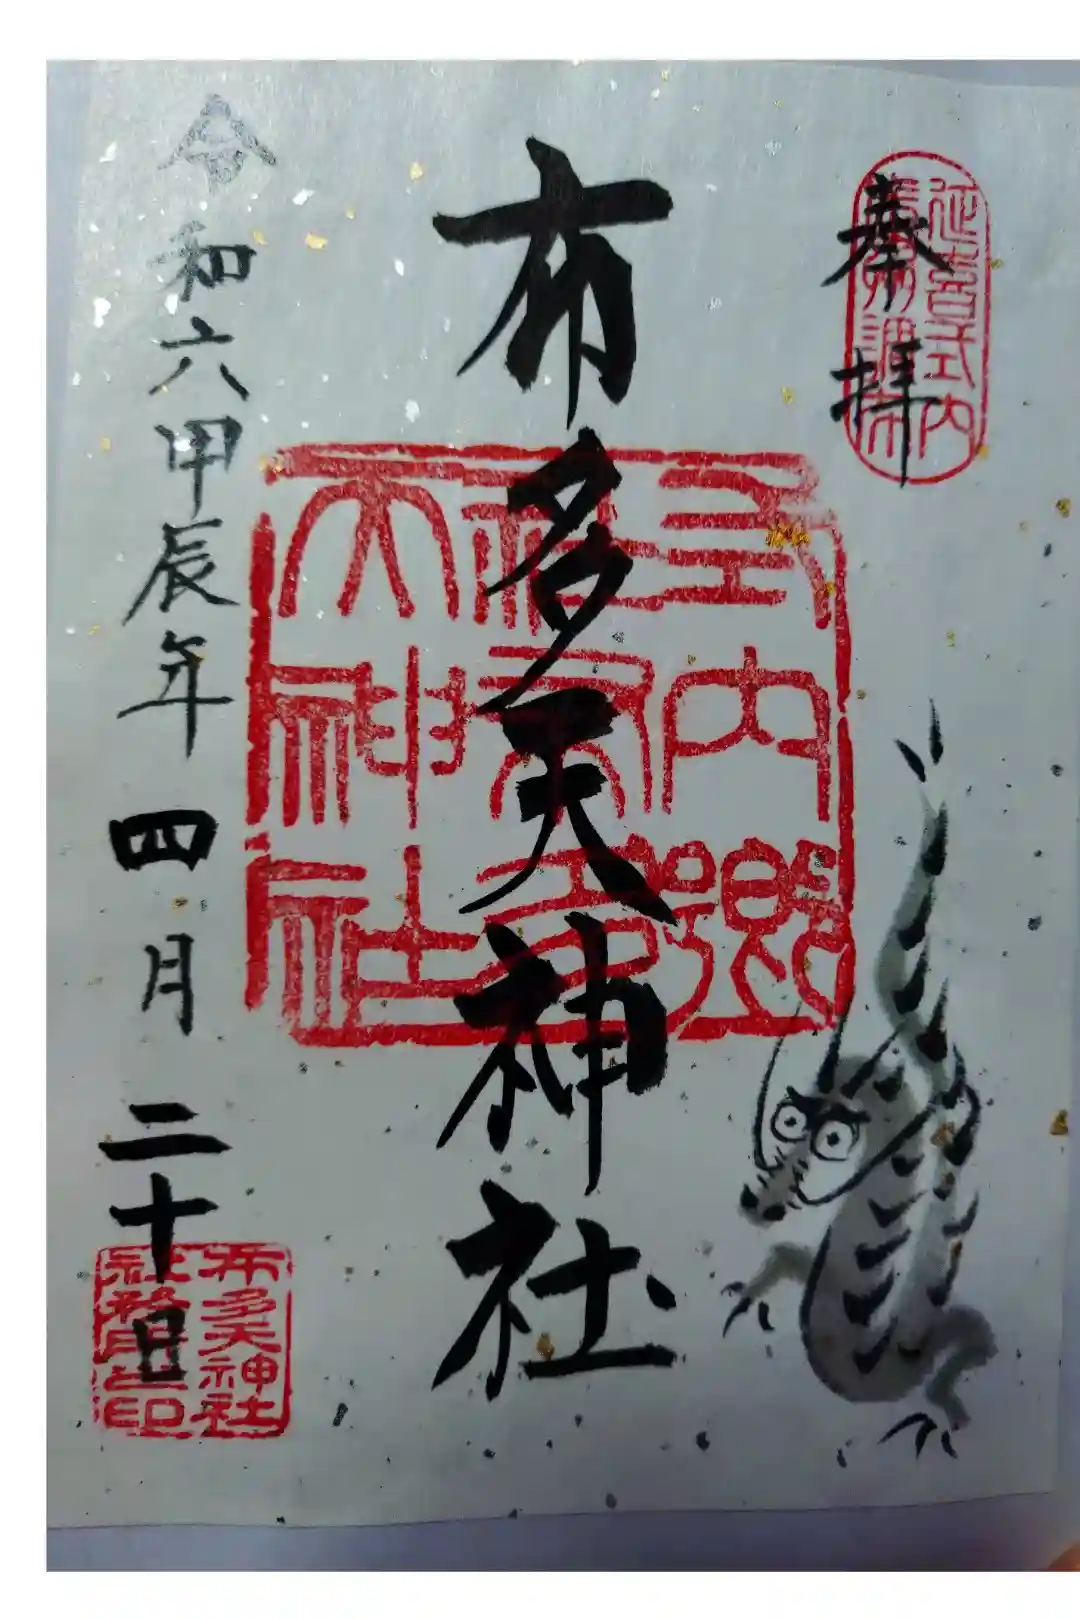 奉拝
延喜式内
調布
布多天神社
式内郷社
天神社
布多天神社
社務之印
令和六甲辰年四月二十日